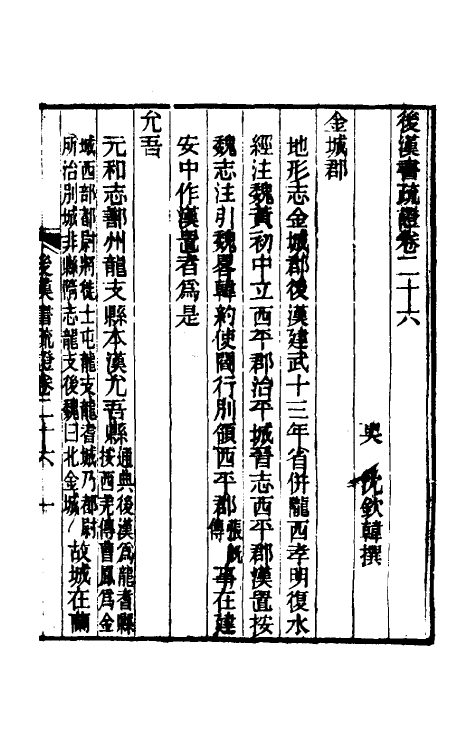 後漢書疏證卷二十六
吳 沈欽韓撰
金城郡
地形志金城郡後漢建武十三年省併隴西孝明復水
經注魏黃初中立西平郡治平城晉志西平郡漢置按
魏志注引魏畧韓約使閻行別領西平郡張旣傳事在建
安中作漢置者為是
允吾
元和志鄯州龍支縣本漢允吾縣通典後漢為龍耆縣按西羌傳曹鳳為金
城西部都尉將徙士屯龍支龍耆城乃都尉所治別城非縣隋志龍支後魏曰北金城故城在蘭
後漢書疏證卷二十六 一